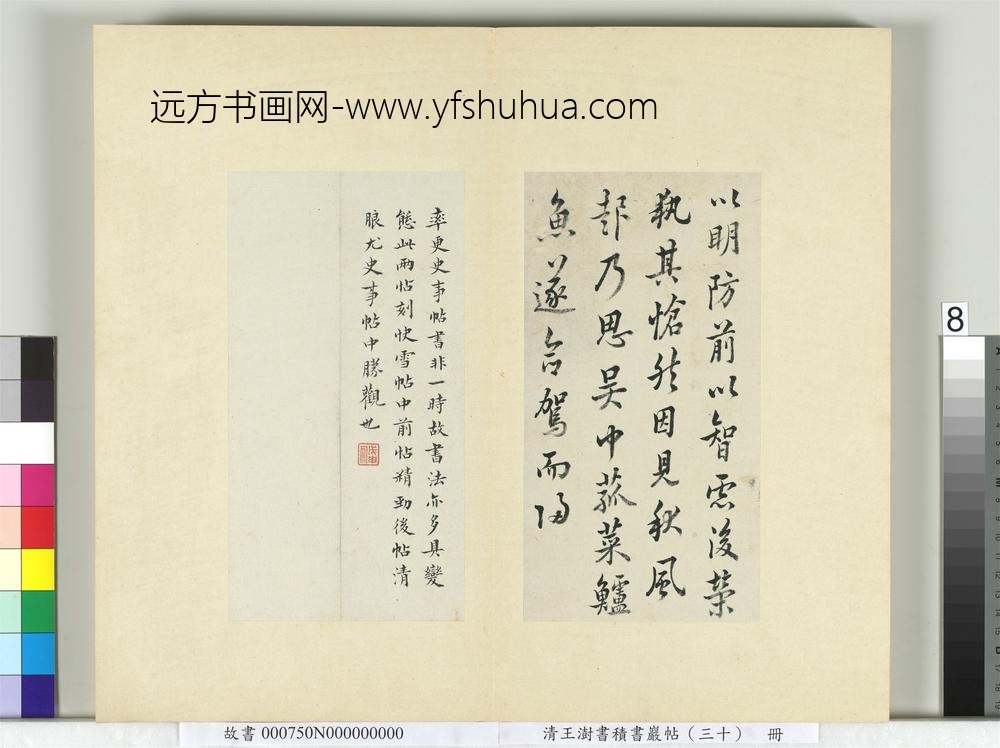 远方书画网-www.yfshuhua.com
以明防前以智慮後榮
執其愴然因見秋風
起乃思吴中菰菜鱸
魚遂命駕而歸
率更史事帖書非一時故書法亦多具變
態此兩帖刻快雪帖中前帖精勁後帖清
朗尤史事帖中勝觀也
8
故書 000750N000000000
清王澍書積書巖帖（三十） 冊